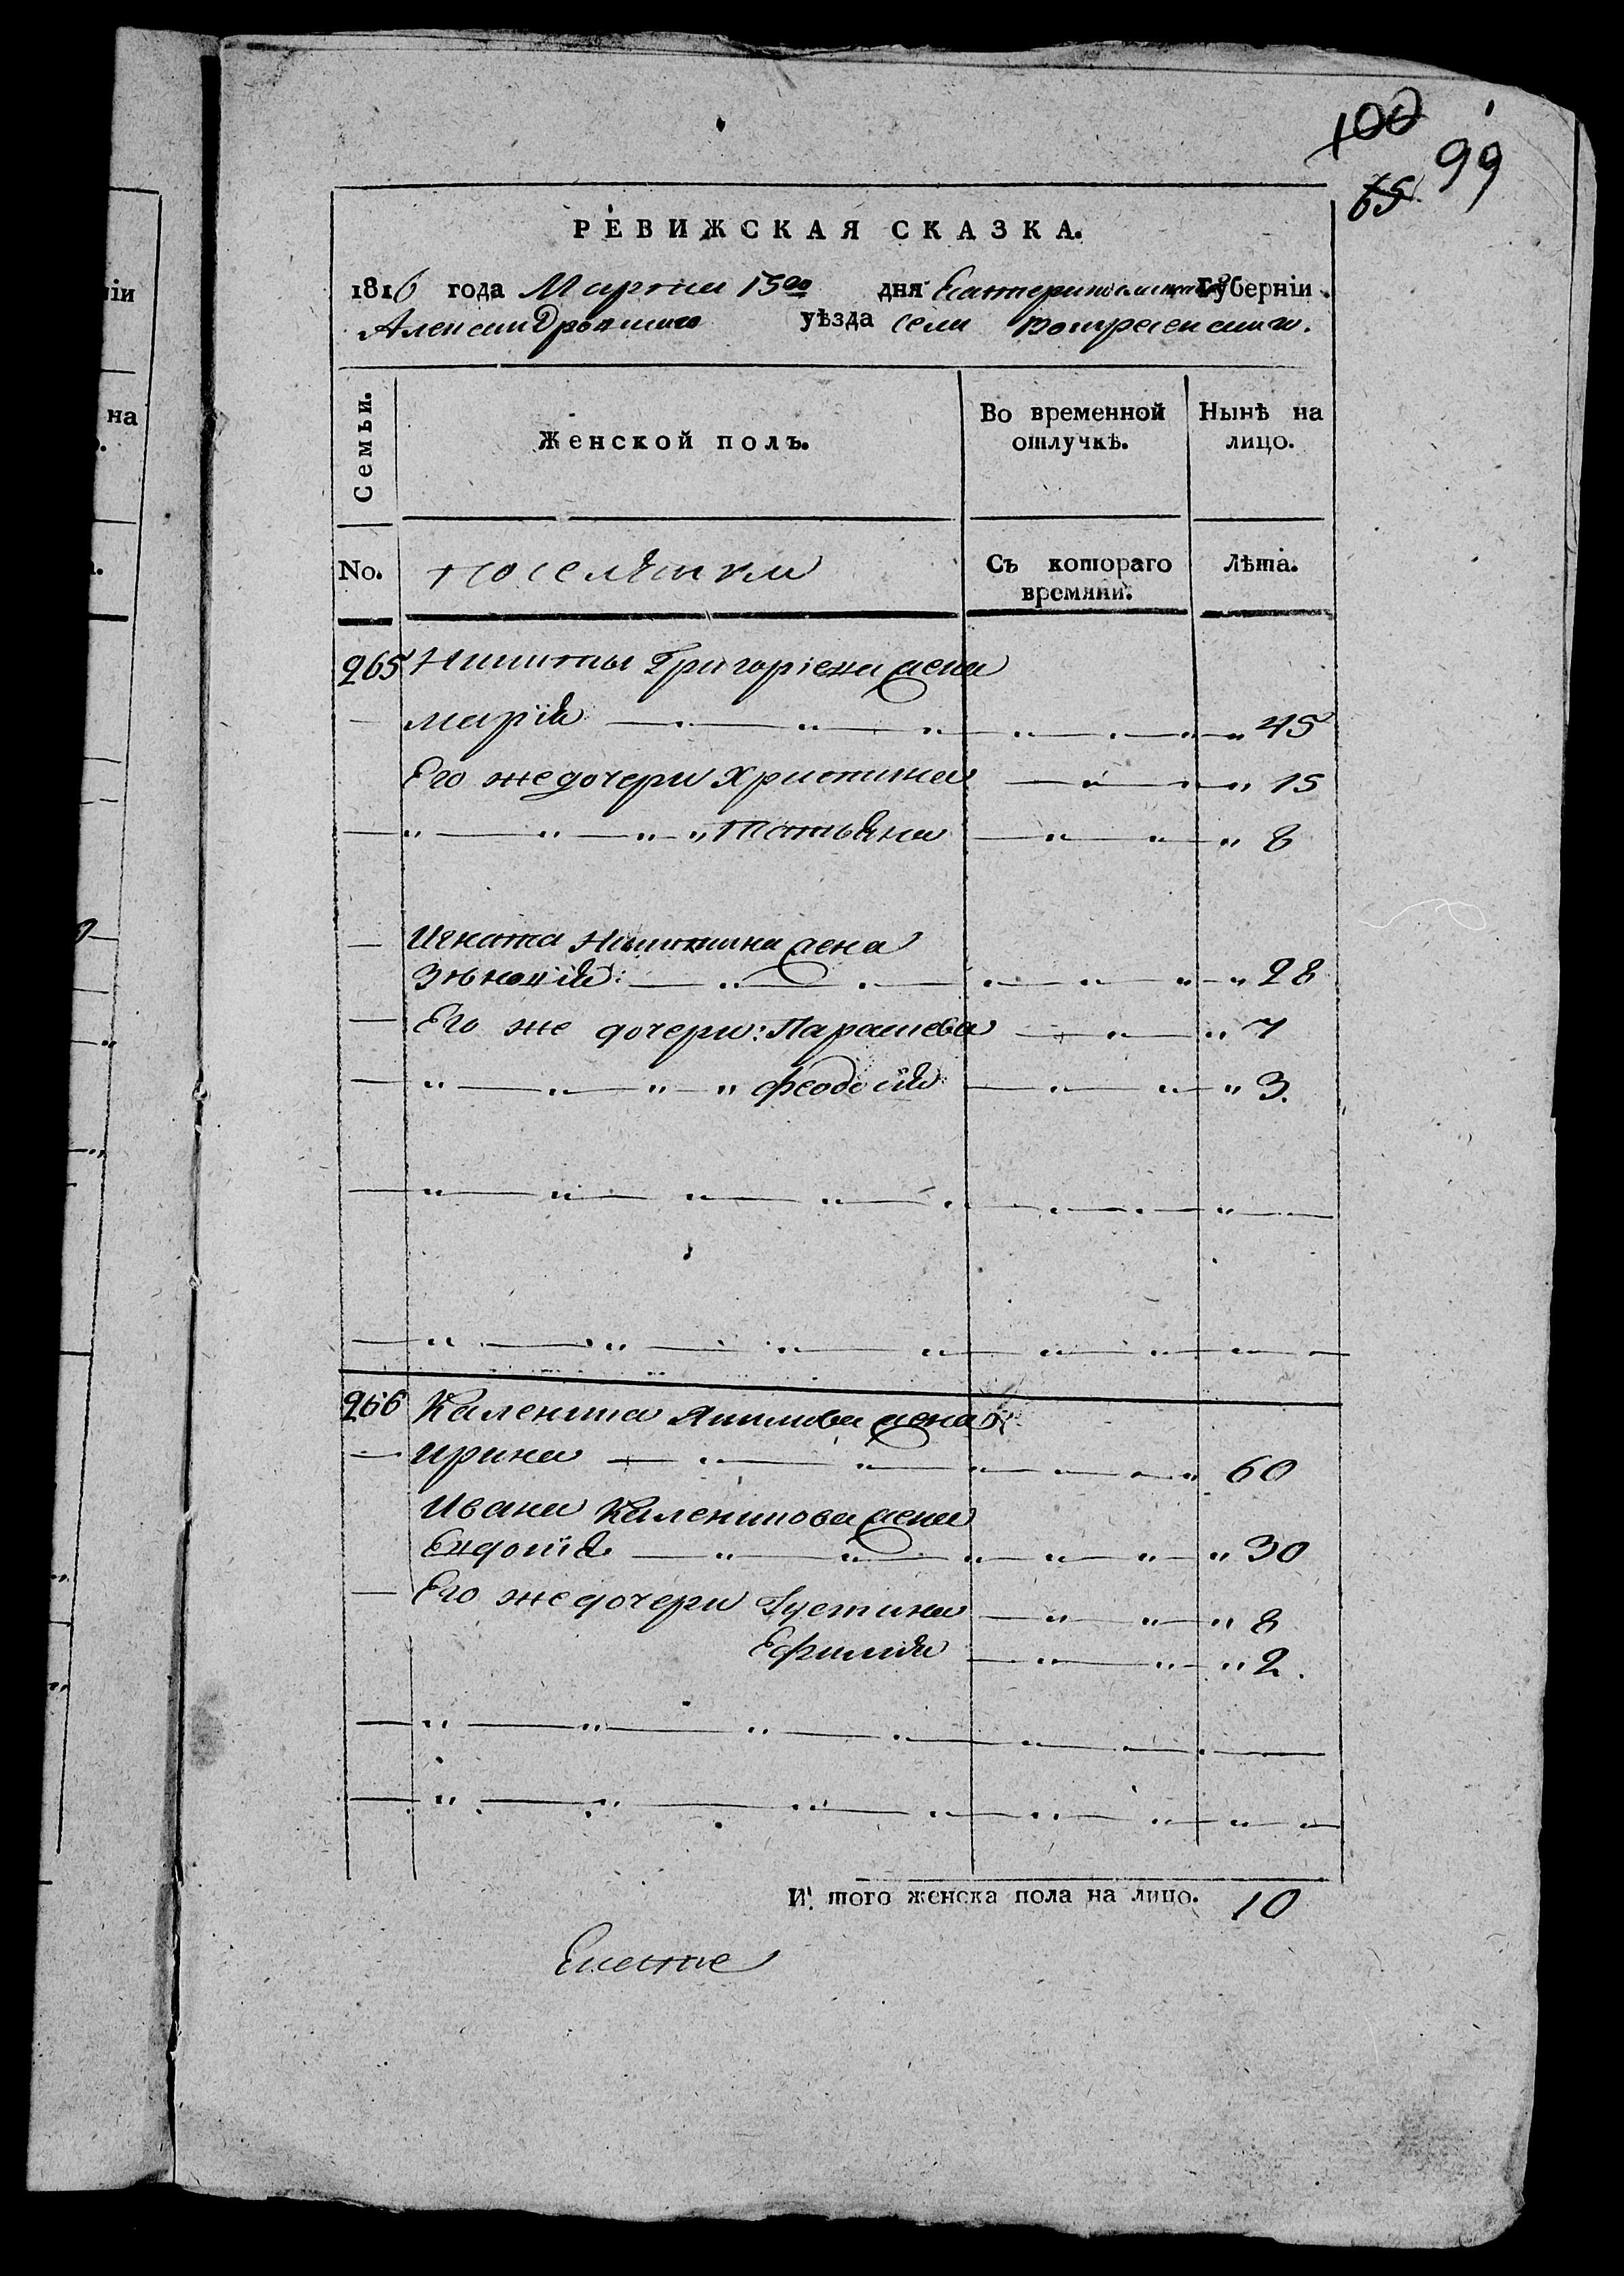 100
99
65
РЕВИЖСКАЯ СКАЗКА.
1816 года Марта 15го дня Екатеринославской Губерніи.
Александровскаго уѣзда села Вознесенскаго.
Семьи.
Женской полъ.
Во временной отлучкѣ.
Нынѣ на лицо.
No.
поселянки
Съ котораго времяни.
Лѣта.
265 Никиты Григоріева жена
Марія 45
Его же дочери Христина 15
Татьяна 8
Игната Никитина жена
Зѣновія 28
Его же дочери: Параскева 7
Феодосія 3.
266 Каленика Якимова жена
Ирина 60
Ивана Каленикова жена
Евдокія 30
Его же дочери Іустина 8
Ефимія 2.
И того женска пола на лицо. 10
ніи
на